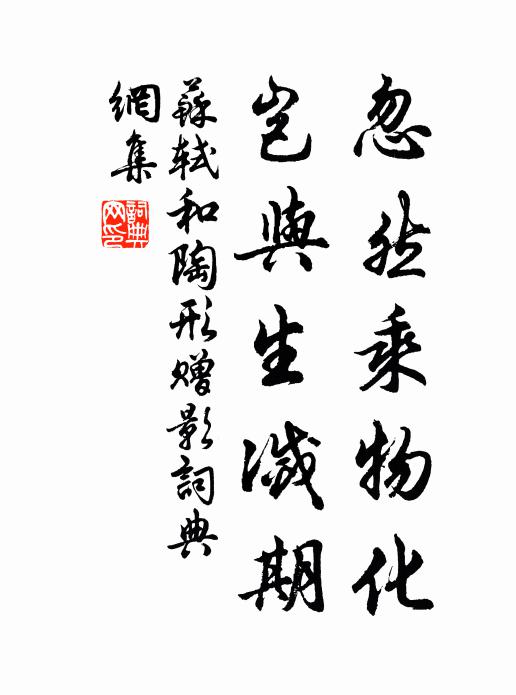 忽然乘物化
豈與生滅期
蘇軾和陶形贈影詞典
網集
詞典
网印